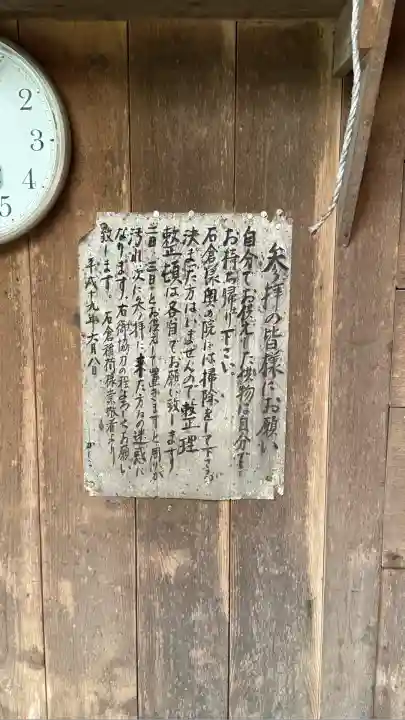 2
3
4
5
参拝の皆様にお願い
自分でお供えした供物は自分で
お持ち帰り下さい。
石倉様奥の院には掃除をして下さる
決まった方はいませんので整理
整頓は各自でお願い致します
二日、三日とお供えして置きますと周りが
汚れ次に参拝に来た方々の迷惑に
なります。右御協力の程よろしくお願い
致します。石倉稲荷様崇敬者より
平成十九年六月八日